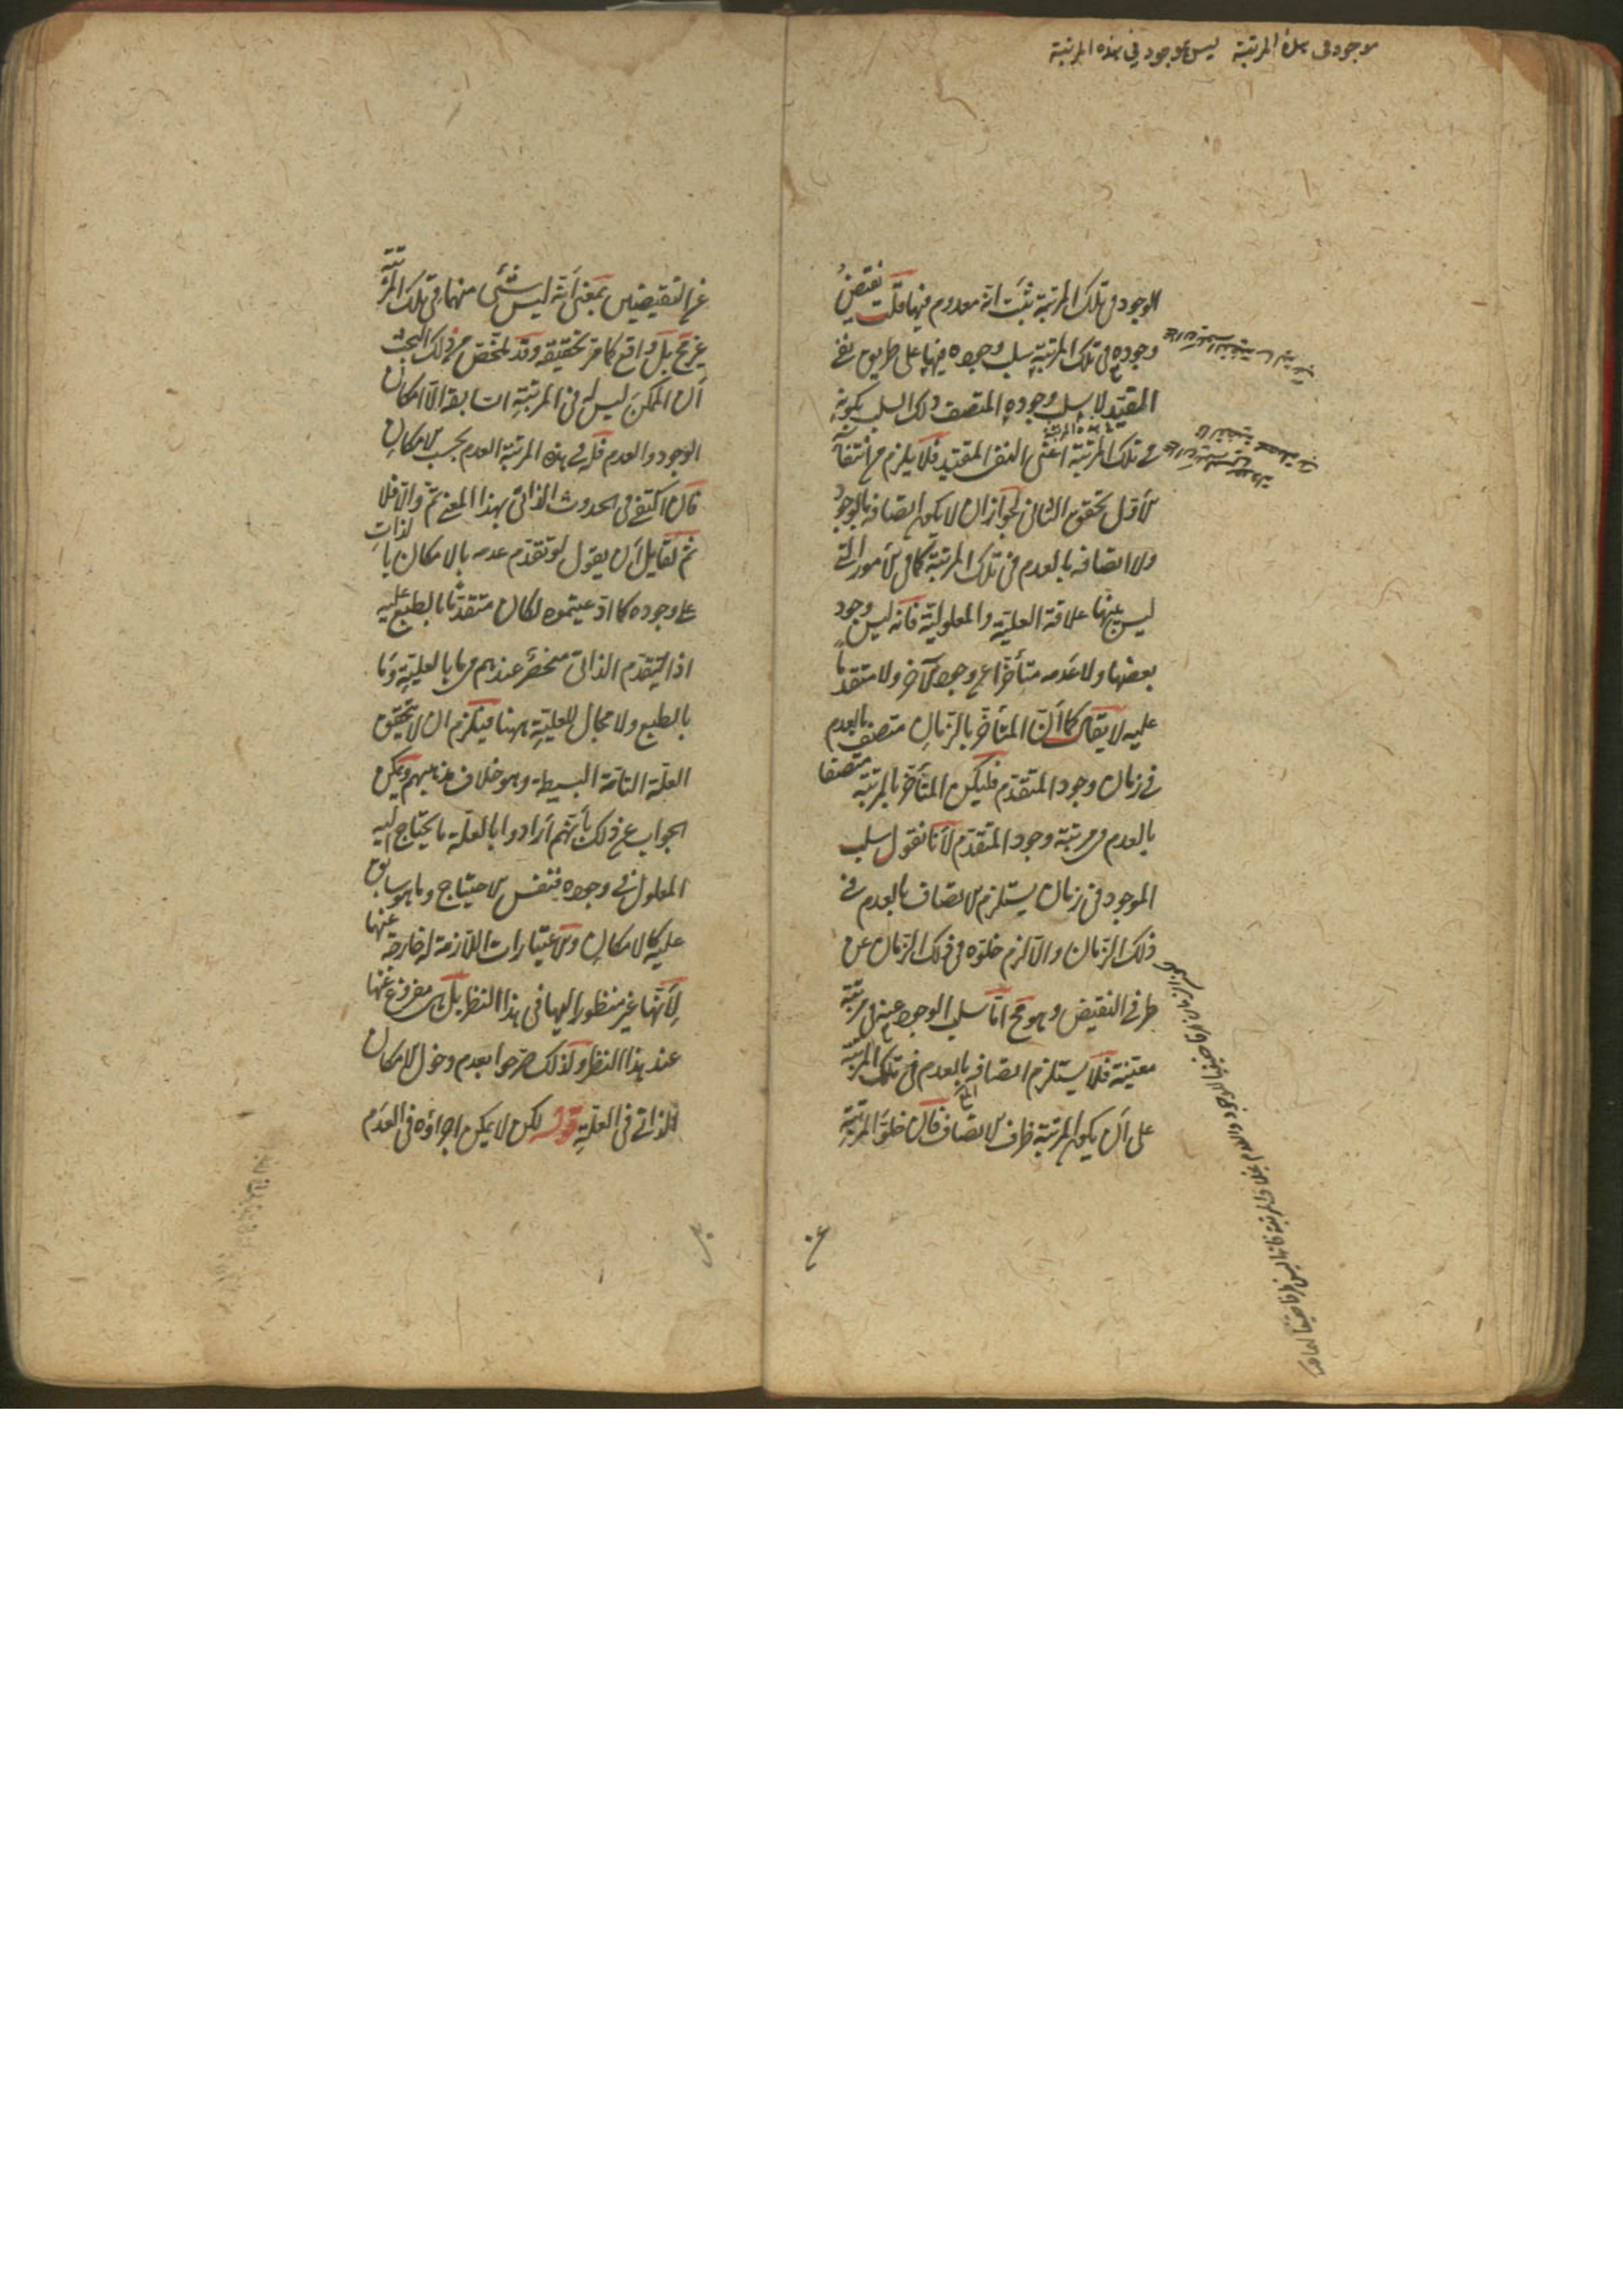 موجود فى هذه المرتبة ليس بموجود في هذه المرتبة
الوجود في تلك المرتبة ثبت انه معدوم فيها قلت نقيض
وجوده في تلك المرتبة سلب وجوده فيها على طريق نفي
المقيد لا سلب وجوده المتصف ذلك السلب بكونه
في تلك المرتبة اعنى النفى المقيد فلا يلزم من انتفآء
الاول تحقق الثانى لجواز ان لا يكون اتصافه بالوجود
ولا اتصافه بالعدم فى تلك المرتبة كما فى الامور التي
ليس بينها علاقة العلية والمعلولية فانه ليس وجود
بعضها ولا عدمه متأخرا عن وجود الآخر ولا متقدما
عليه لا يقال كما أن المتأخر بالزمان متصف بالعدم
في زمان وجود المتقدم فليكن المتأخر بالمرتبة متصفا
بالعدم فى مرتبة وجود المتقدم لأنا نقول سلب
الموجود فى زمان يستلزم الاتصاف بالعدم في
ذلك الزمان والا لزم خلوه فى ذلك الزمان عن
طرفي النقيض وهو مح اما سلب الوجود عنه فى مرتبة
معينة فلا يستلزم اتصافه بالعدم في تلك المرتبة
على أن يكون المرتبة ظرف الاتصاف فان خلو المرتبة
عن النقيضين بمعنى أنه ليس شئ منهما فى تلك المرتبة
غير مح بل واقع كما مر تحقيقه وقد تلخص من ذلك البحث
أن الممكن ليس له فى المرتبة السابقة الا امكان
الوجود والعدم فله في هذه المرتبة العدم بحسب الامكان
فان اكتفى فى الحدوث الذاتى بهذا المعنى تم والا فلا
ثم لقايل أن يقول لو تقدم عدمه بالامكان بالذات
على وجوده كما ادعيتموه لكان متقدما بالطبع عليه
اذ التقدم الذاتى منحصر عندهم فى ما بالعلية وما
بالطبع ولا مجال للعلية ههنا فيلزم ان لا يتحقق
العلة التامة البسيطة وهو خلاف مذهبهم ويمكن
الجواب عن ذلك بأنهم أرادوا بالعلة ما يحتاج اليه
المعلول في وجوده فنفس الاحتياج وما هو سابق
عليه كالامكان والاعتبارات اللازمة له خارجة عنها
لأنها غير منظور اليها فى هذا النظر بل هى مفروغ عنها
عند هذا النظر ولذلك صرحوا بعدم دخول الامكان
الذاتي فى العلة قوله لكن لا يمكن اجراؤه فى العدم